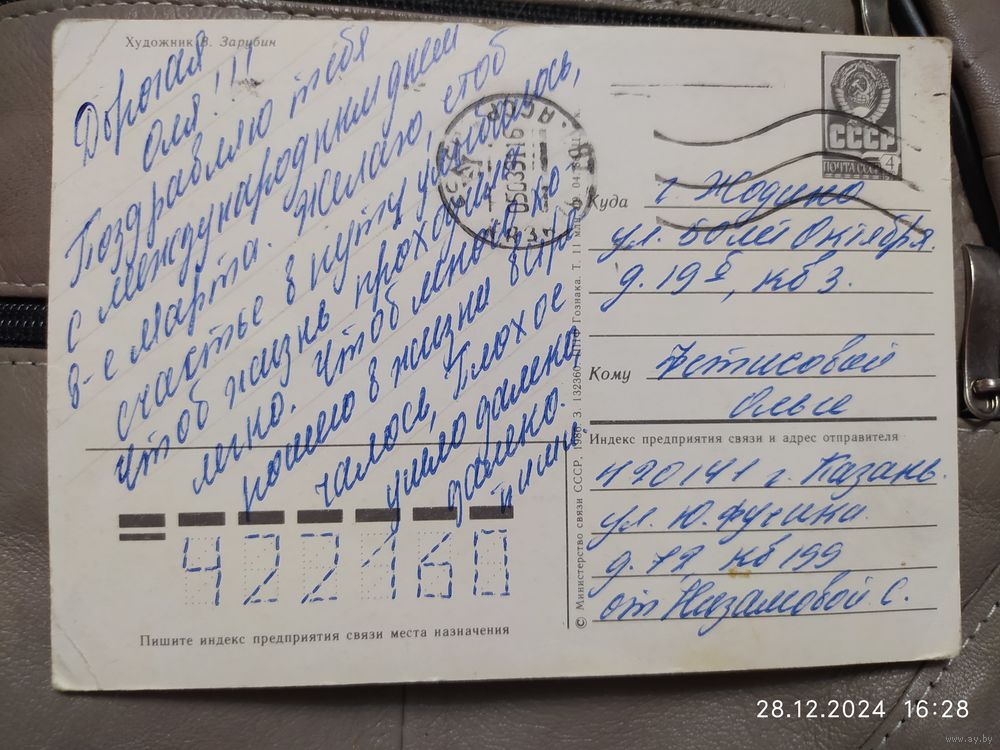 Художник В. Зарубин
Дорогая
Оля!!!
Поздравляю тебя
с международным днем
8-е марта. Желаю, чтоб
счастье в путу улыбалось,
чтоб жизнь проходила
легко. Чтоб много хо-
рошего в жизни встре-
чалось, Плохое
ушло далеко
далеко.
Пишите индекс предприятия связи места назначения
422160
СССР
ПОЧТА СССР
4
Куда г. Жодино
ул. 50 лет Октября.
д. 19, кв 3.
Кому
Ольге
Индекс предприятия связи и адрес отправителя
420141 г. Казань.
ул. Ю. Фучика
д. 72 кв 199
от Назамовой С.
© Министерство связи СССР, 1986. З. 132360. ППФ Гознака. Т. 11 млн.
28.12.2024 16:28
www.ay.by